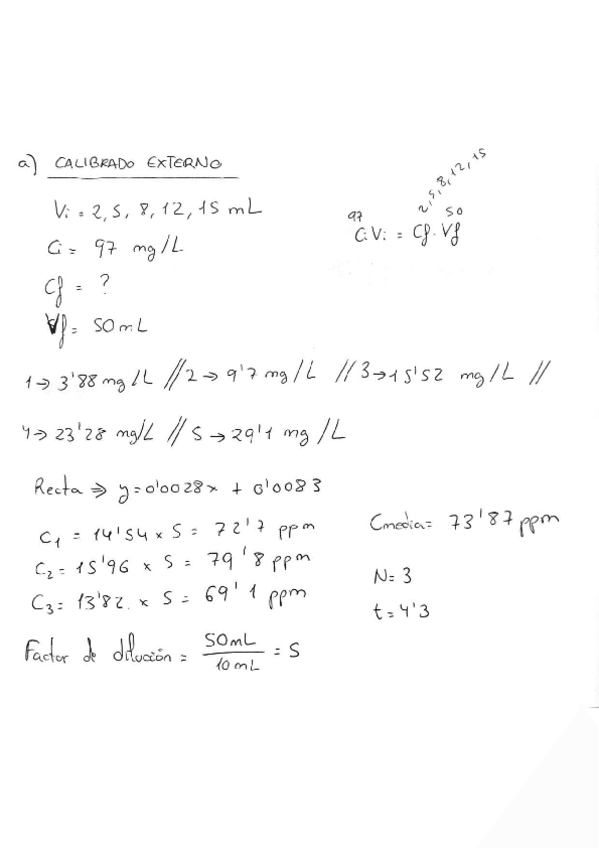 a) CALIBRADO EXTERNO
Vi = 2, 5, 8, 12, 15 mL
Ci = 97 mg/L
Cf = ?
Vf = 50 mL
2, 5, 8, 12, 15
97 50
Ci Vi = Cf · Vf
1 → 3'88 mg/L // 2 → 9'7 mg/L // 3 → 15'52 mg/L //
4 → 23'28 mg/L // 5 → 29'1 mg/L
Recta ⇒ y = 0'0028x + 0'0083
C1 = 14'54 x 5 = 72'7 ppm
C2 = 15'96 x 5 = 79'8 ppm
C3 = 13'82 x 5 = 69'1 ppm
Cmedia = 73'87 ppm
N = 3
t = 4'3
Factor de dilución = 50 mL / 10 mL = 5